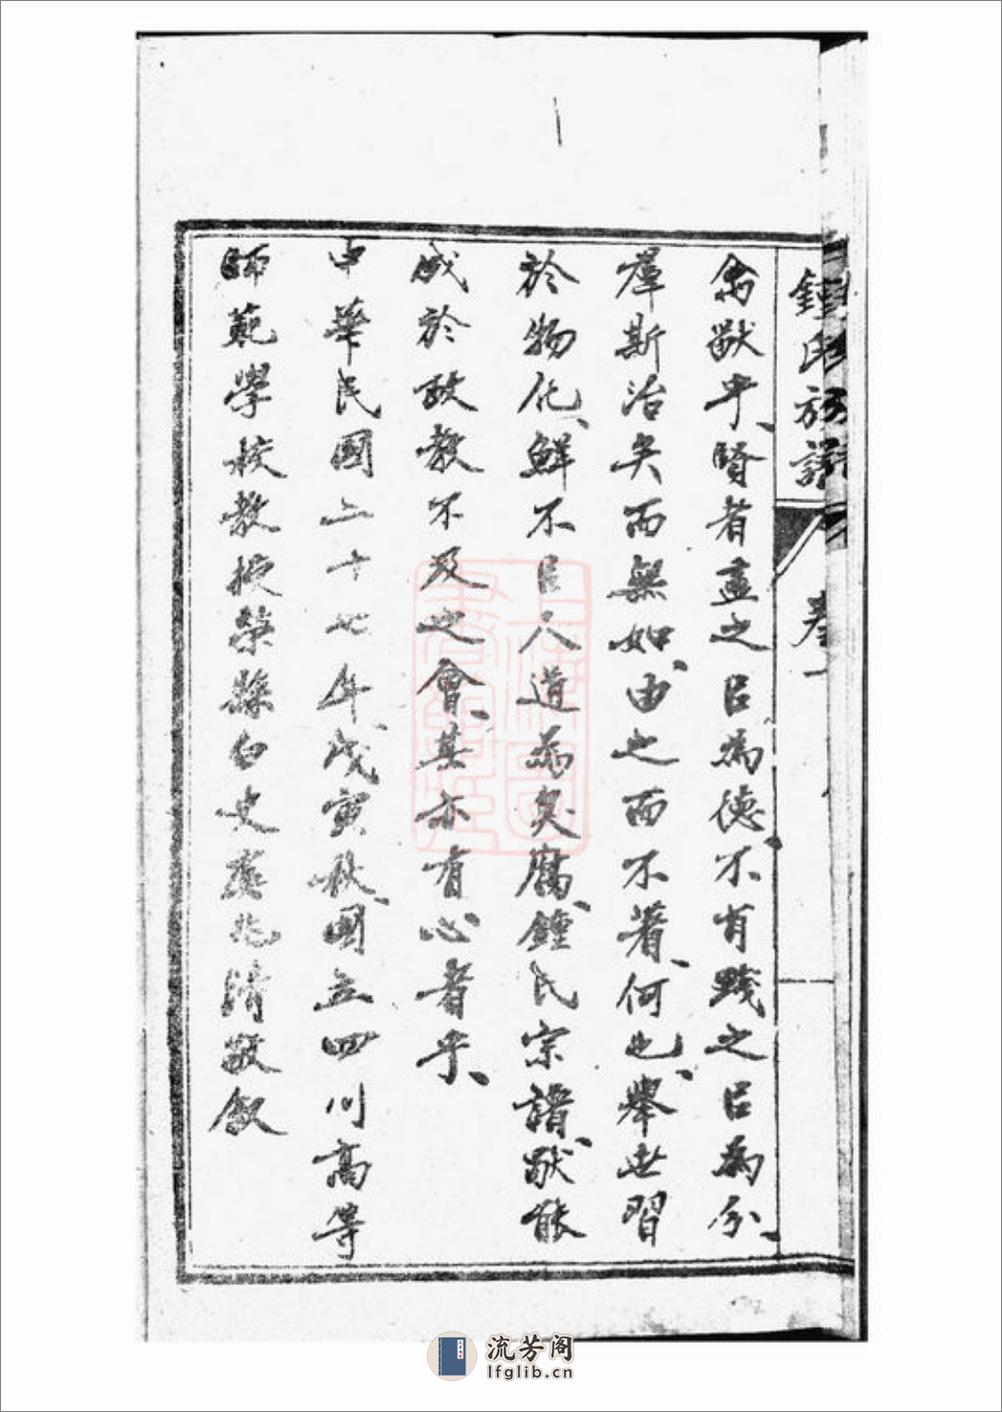 鍾氏族譜
卷一
禽獸乎、賢者盡之㠯為德、不肯踐之㠯為分、
羣斯治矣而無如、由之而不著、何也、舉世習
於物化、鮮不㠯人道為臭腐、鍾氏宗譜、猷能
成於政教不及之會、其亦有心者乎、
中華民國二十七年、戊寅秋、國立四川高等
師範學校教授榮縣白史龔兆清敬敘
流芳阁
lfglib.cn